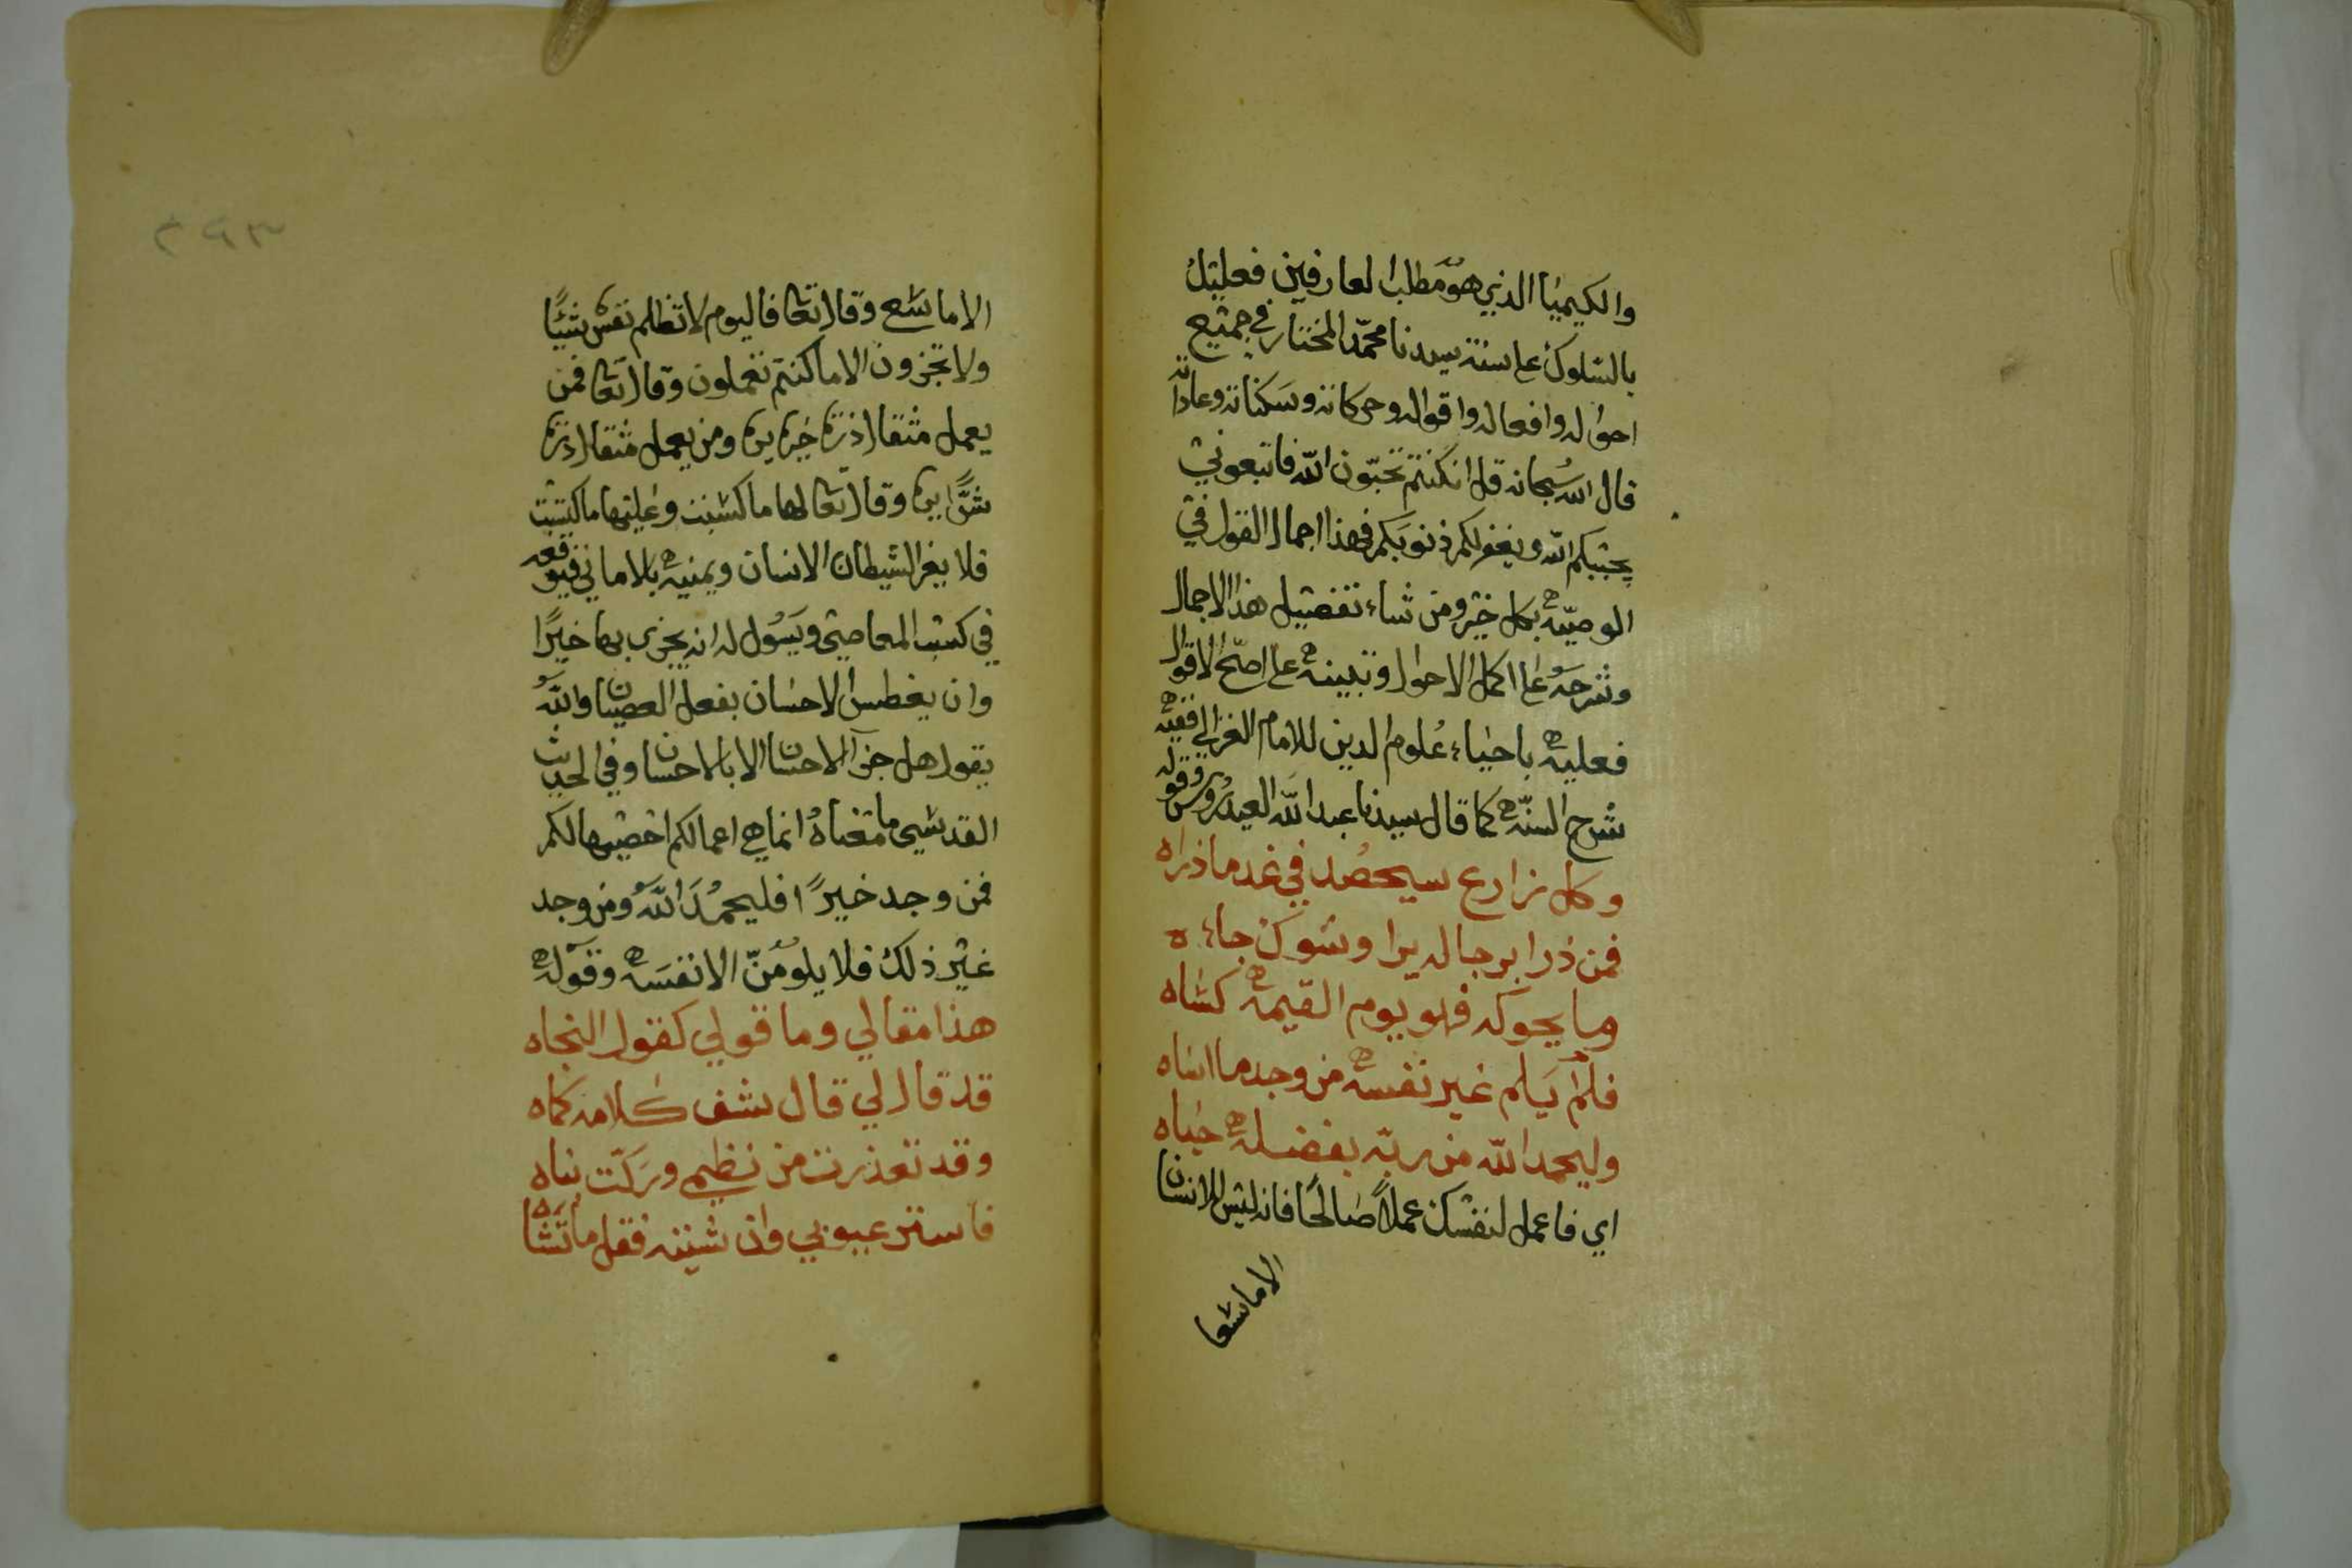 والكيميا الذي هو مطلب العارفين فعليك
بالسلوك على سنة سيدنا محمّد المختار في جميع
احواله وافعاله واقواله وحركاته وسكناته وعاداته
قال الله سُبحانه قل ان كنتم تحبّون الله فاتبعوني
يحببكم الله ويغفر لكم ذنوبكم فهذا اجمال القول في
الوصيّه بكل خير ومن شاء تفصيل هذا الاجمال
وشرحه على اكمل الاحوال وتبيينه على اصحّ الاقوال
فعليه باحياء عُلوم الدين للامام الغزالي ففيه
شرح السنّه كما قال سيدنا عبدالله العيدروس وقوله
وكل زارع سيحصُد في غد ما ذراه
فمن ذرا بر جا له برا وشوك جاءه
وما يحوكه فهو يوم القيمه كساه
فلم يَلم غير نفسه من وجد ما اساه
وليحمد الله من ربّه بفضله حباه
اي فاعمل لنفسك عملاً صَالحًا فانه ليس للانسان
الا ما سعا
٢٩٣
الا ما سَعى وقال تعالى فاليوم لا تظلم نفس شيئًا
ولا تجزون الا ما كنتم تعملون وقال تعالى فمن
يعمل مثقال ذرة خيرا يره ومن يعمل مثقال ذرة
شرًّا يره وقال تعالى لها ما كسبت وعليها ما اكتسبت
فلا يغر الشيطان الانسان ويمنيه بالاماني فيوقعه
في كسب المعاصي ويسوّل له انه يجزى بها خيرًا
وان يغطس الاحسان بفعل العصيان والله
يقول هل جزآ الاحسان الا بالاحسان وفي الحديث
القدسي ما معناهُ انما هي اعمالكم احصيها لكم
فمن وجد خيرًا فليحمُدَ اللهَ ومن وجد
غير ذلك فلا يلومَنّ الا نفسَه وقوله
هذا مقالي وما قولي كقول النجاه
قد قال لي قال شف كلامه كماه
وقد تعذرت من نظمي وركّت بناه
فاستر عيوبي وان شينه فقل ما تشاه